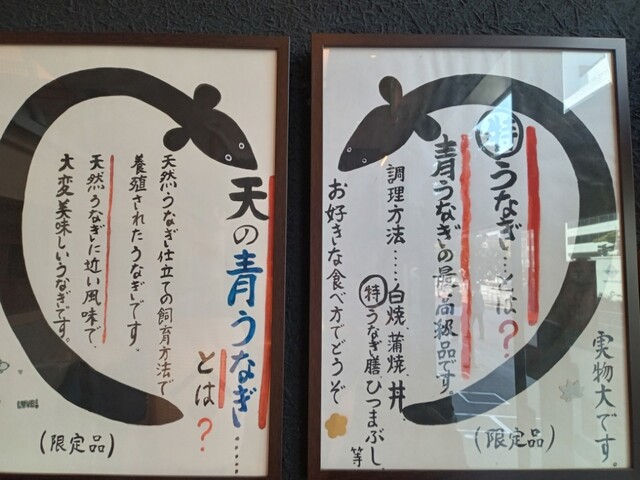 天の青うなぎ……
とは？
天然うなぎ仕立ての飼育方法で
養殖されたうなぎです。
天然うなぎに近い風味で
大変美味しいうなぎです。
(限定品)
特うなぎ…とは？
青うなぎの最高級品です。
調理方法……白焼、蒲焼、丼、
特うなぎ膳、ひつまぶし、等
お好きな食べ方でどうぞ
(限定品)
実物大です。